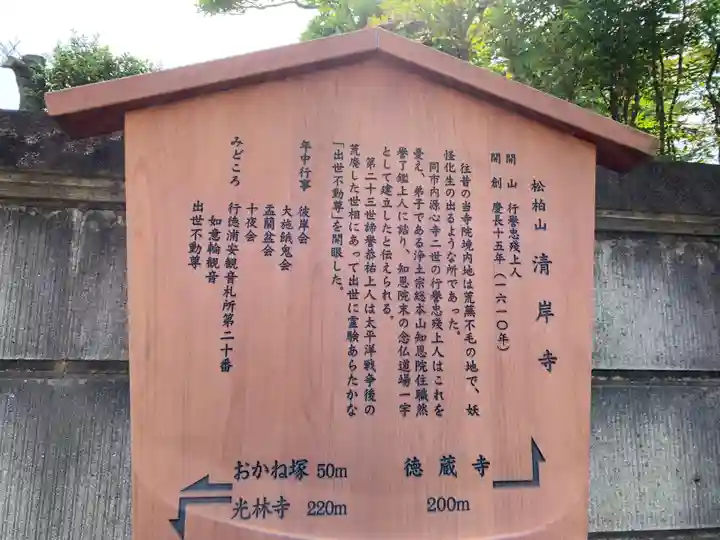 松柏山 清岸寺
開山 行誉忠残上人
開創 慶長十五年(一六一〇年)
往昔の当寺院境内地は荒蕪不毛の地で、妖
怪化生の出るような所であった。
同市内源心寺二世の行誉忠残上人はこれを
憂え、弟子である浄土宗総本山知恩院住職然
誉了鑑上人に諮り、知恩院末の念仏道場一宇
として建立したと伝えられる。
第二十三世締誉恭祐上人は太平洋戦争後の
荒廃した世相にあって出世に霊験あらたかな
「出世不動尊」を開眼した。
年中行事 彼岸会
大施餓鬼会
盂蘭盆会
十夜会
みどころ 行徳浦安観音札所第二十番
如意輪観音
出世不動尊
徳蔵寺
200m
おかね塚 50m
光林寺 220m